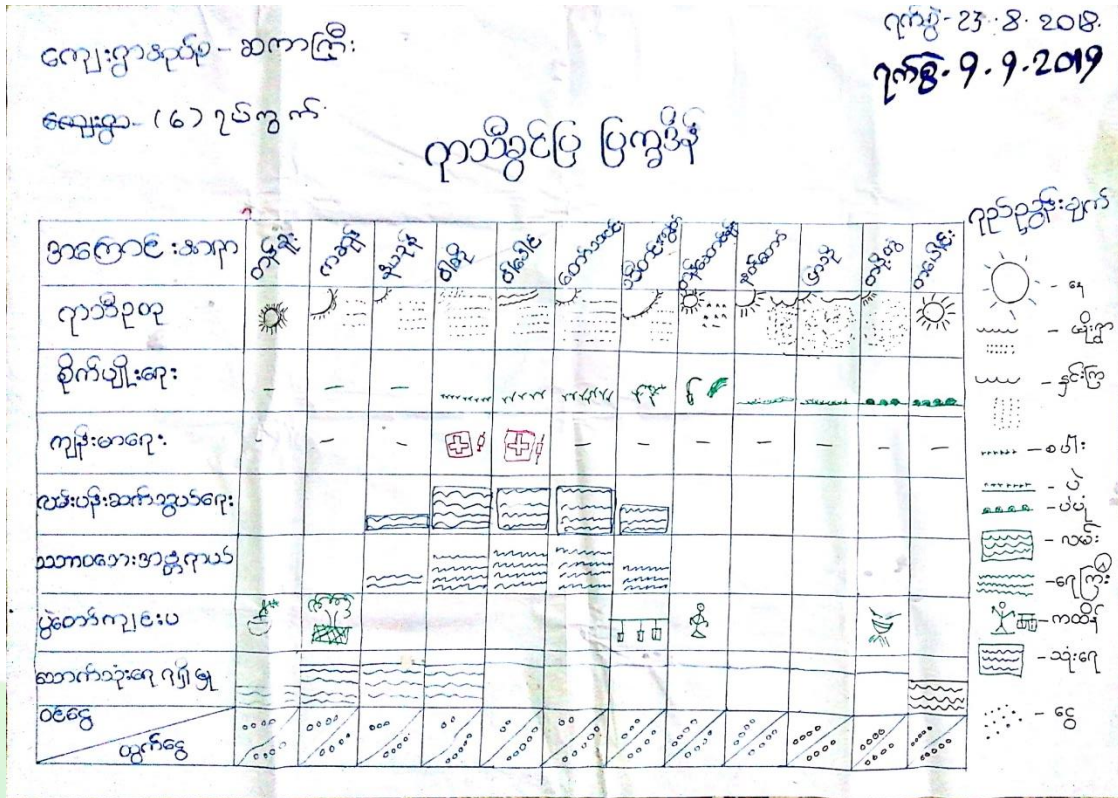 ကျေးရွာအုပ်စု - ဆကာကြီး
ရက်စွဲ - 23 . 8 . 2018.
ရက်စွဲ . 9 . 9 . 2019
ကျေးရွာ - (၆) ရပ်ကွက်
ရာသီခွင်ပြ ပြက္ခဒိန်
အကြောင်းအရာ
တန်ခူး
ကဆုန်
နယုန်
ဝါဆို
ဝါခေါင်
တော်သလင်း
သီတင်းကျွတ်
တန်ဆောင်မုန်း
နတ်တော်
ပြာသို
တပို့တွဲ
တပေါင်း
ရာသီဥတု
စိုက်ပျိုးရေး
ကျန်းမာရေး
လမ်းပန်းဆက်သွယ်ရေး
သဘာဝဘေးအန္တရာယ်
ပွဲတော်ကျင်းပ
သောက်သုံးရေ ရရှိမှု
ဝင်ငွေ
ထွက်ငွေ
ရည်ညွှန်းချက်
- နေ
- မိုးရွာ
- နှင်းကြ
- စပါး
- ပဲ
- ပဲပုံ
- လမ်း
- ရေကြီး
- ကထိန်
- သုံးရေ
- ငွေ